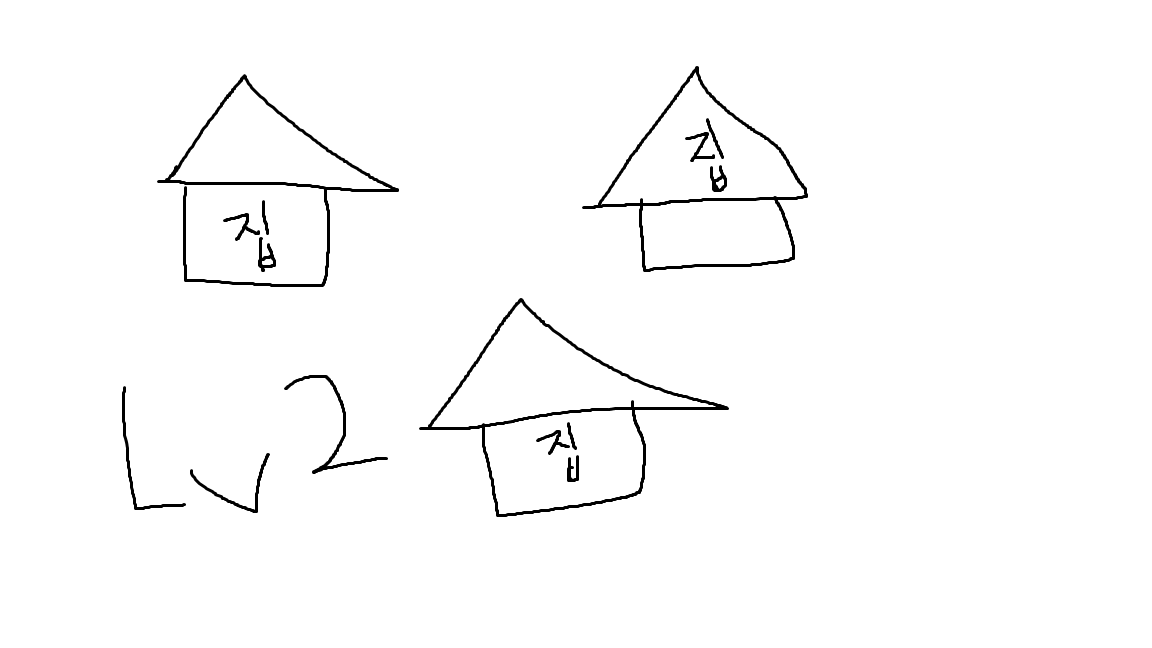 집
집
Lv2
집